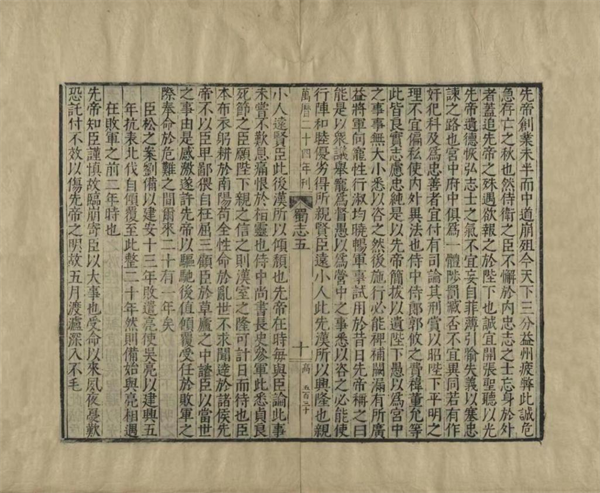 先帝創業未半而中道崩殂今天下三分益州疲弊此誠危
急存亡之秋也然侍衛之臣不懈於內忠志之士忘身於外
者蓋追先帝之殊遇欲報之於陛下也誠宜開張聖聽以光
先帝遺德恢弘志士之氣不宜妄自菲薄引喻失義以塞忠
諫之路也宮中府中俱爲一體陟罰臧否不宜異同若有作
奸犯科及爲忠善者宜付有司論其刑賞以昭陛下平明之
理不宜偏私使內外異法也侍中侍郎郭攸之費禕董允等
此皆良實志慮忠純是以先帝簡拔以遺陛下愚以爲宮中
之事事無大小悉以咨之然後施行必能裨補闕漏有所廣
益將軍向寵性行淑均曉暢軍事試用於昔日先帝稱之曰
能是以衆議舉寵爲督愚以爲營中之事悉以咨之必能使
行陣和睦優劣得所親賢臣遠小人此先漢所以興隆也親
萬曆二十四年刊
蜀志五
十
高
五百三十
小人遠賢臣此後漢所以傾頹也先帝在時每與臣論此事
未嘗不歎息痛恨於桓靈也侍中尚書長史參軍此悉貞良
死節之臣願陛下親之信之則漢室之隆可計日而待也臣
本布衣躬耕於南陽苟全性命於亂世不求聞達於諸侯先
帝不以臣卑鄙猥自枉屈三顧臣於草廬之中諮臣以當世
之事由是感激遂許先帝以驅馳後值傾覆受任於敗軍之
際奉命於危難之間爾來二十有一年矣
臣松之案劉備以建安十三年敗遣亮使吳亮以建興五
年抗表北伐自傾覆至此整二十年然則備始與亮相遇
在敗軍之前二年時也
先帝知臣謹慎故臨崩寄臣以大事也受命以來夙夜憂歎
恐託付不效以傷先帝之明故五月渡瀘深入不毛